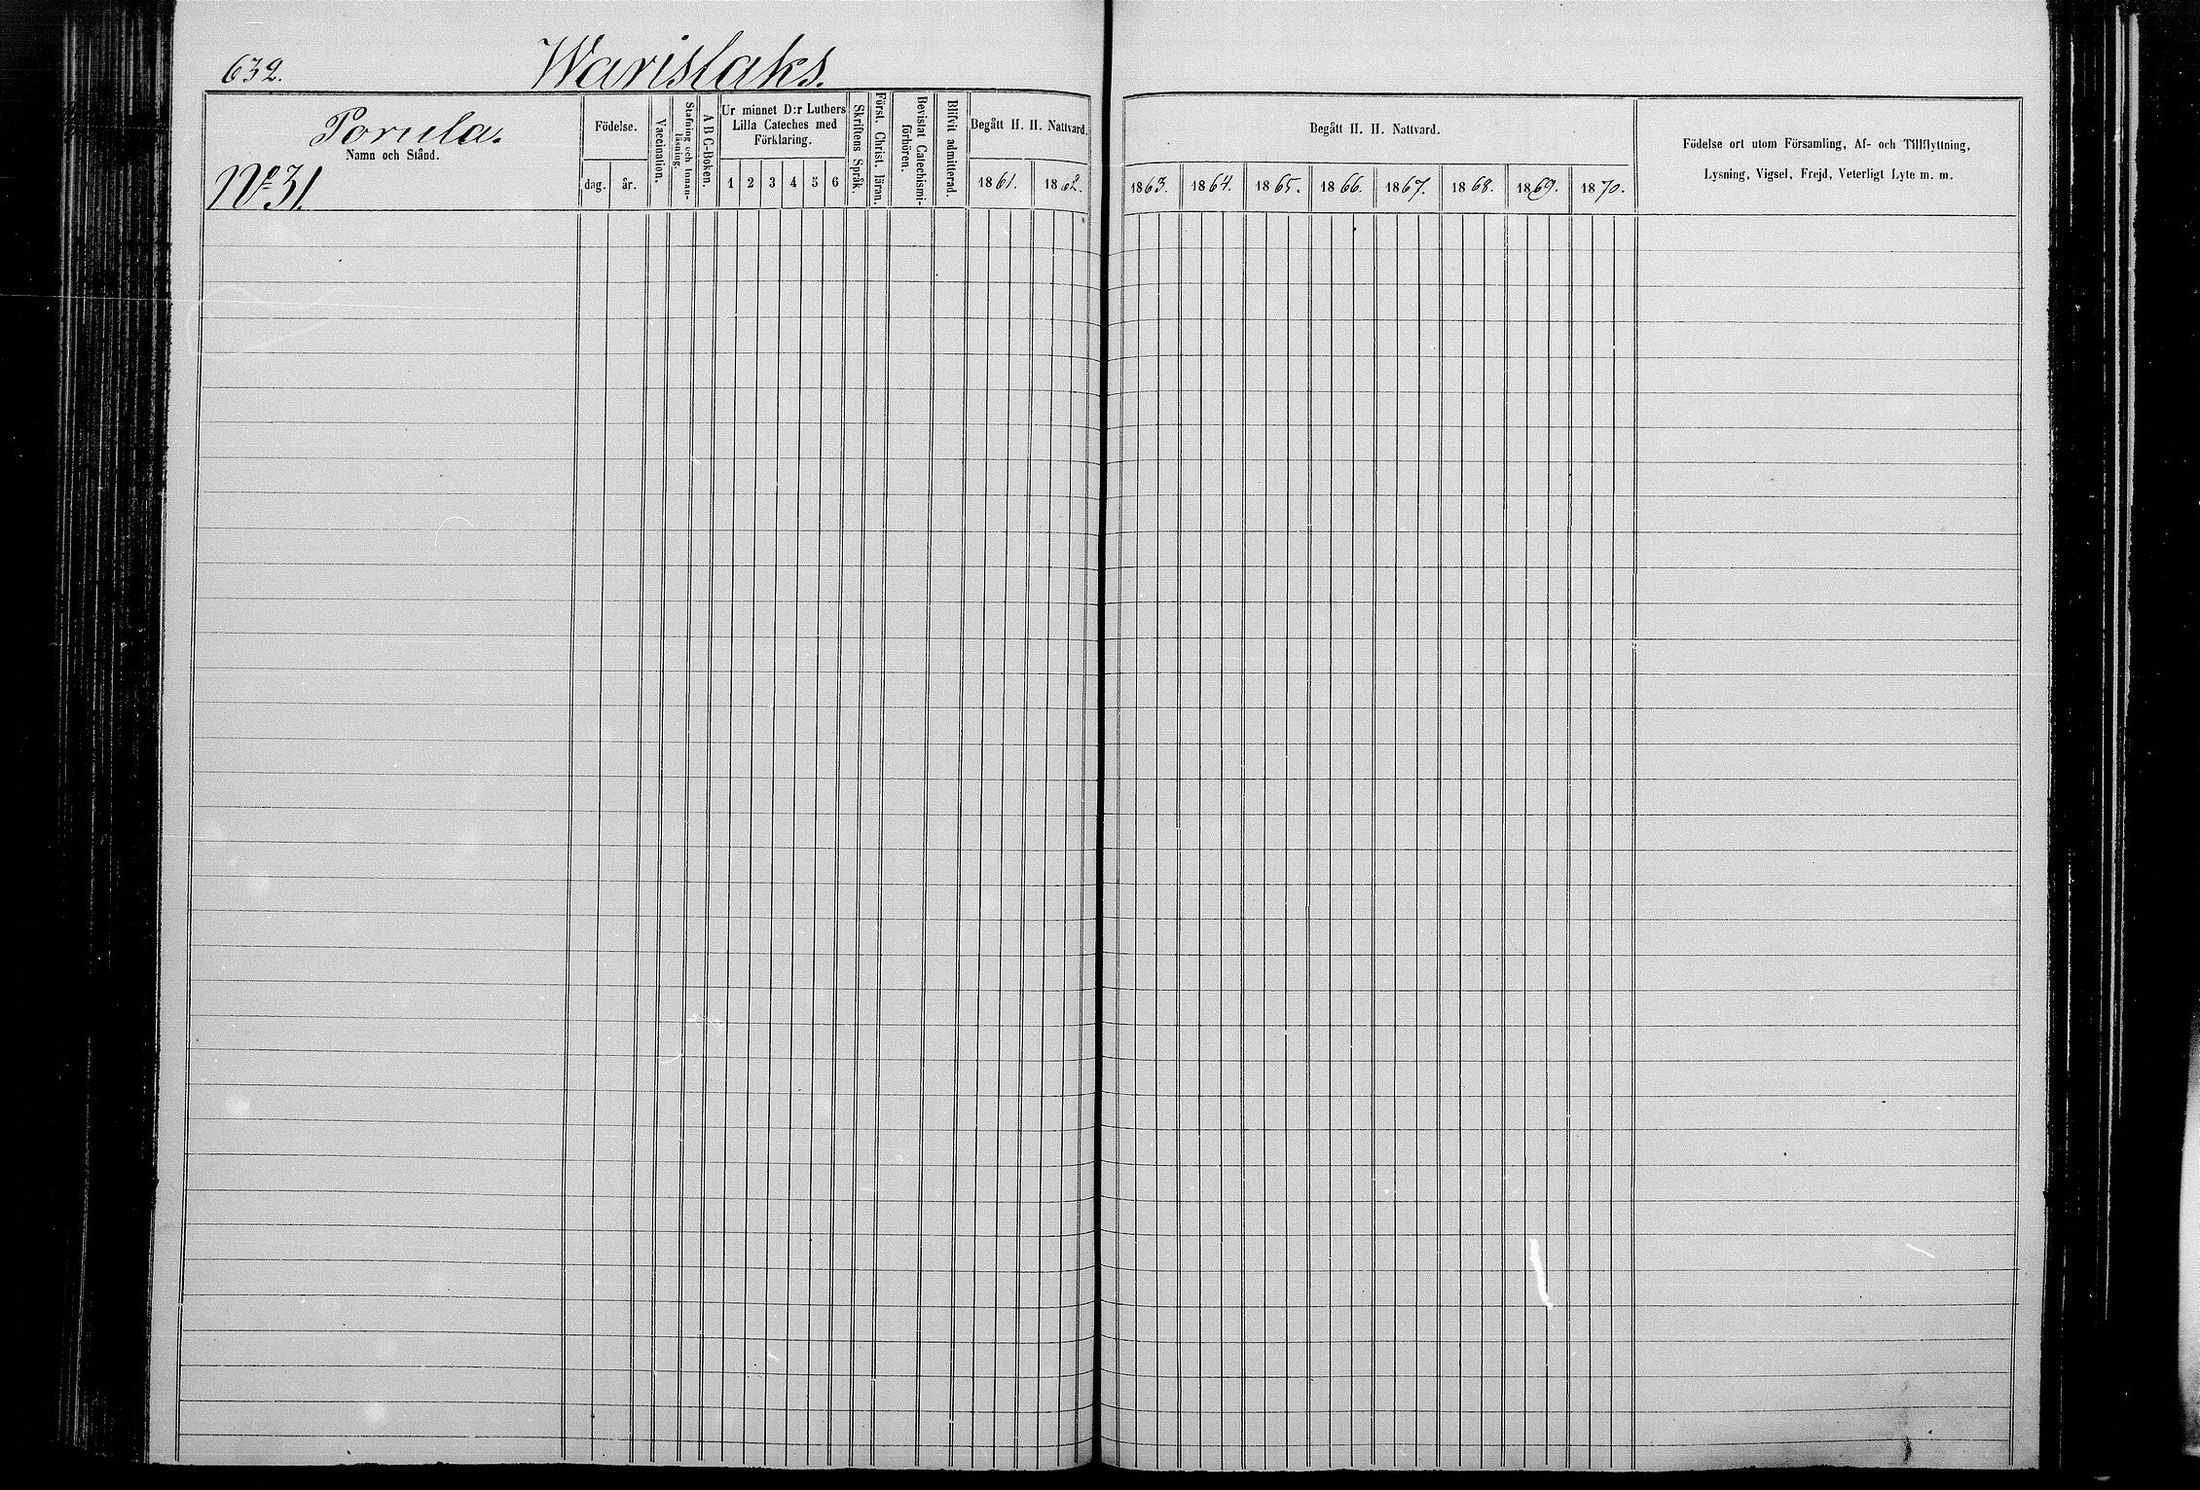 632.
Warislaks.
Porula.
Namn och Stånd.
Nº 31.
Födelse.
dag.
år.
Vaccination.
Stafning och Innan-
läsning.
A B C-Boken.
Ur minnet D:r Luthers
Lilla Cateches med
Förklaring.
1 2 3 4 5 6
Skriftens Språk.
Först. Christ. läran.
Bevistat Catechismi-
förhören.
Blifvit admitterad.
Begått H. H. Nattvard.
1861. 1862.
Begått H. H. Nattvard.
1863. 1864. 1865. 1866. 1867. 1868. 1869. 1870.
Födelse ort utom Församling, Af- och Tillflyttning,
Lysning, Vigsel, Frejd, Veterligt Lyte m. m.